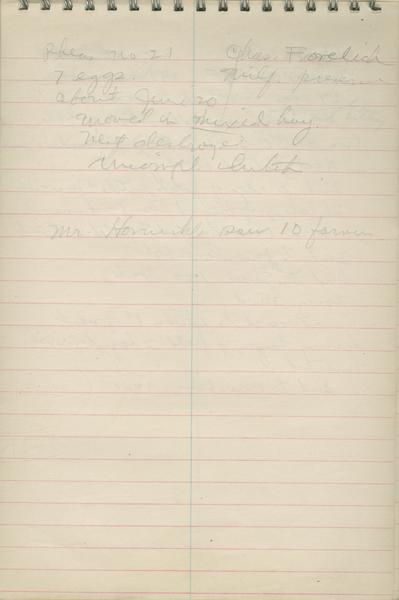 Pheas no 21
Chas. Froelich
7 eggs.
about June 20
moved in mixed hay.
nest destroyed
incompl clutch
Mr. saw 10